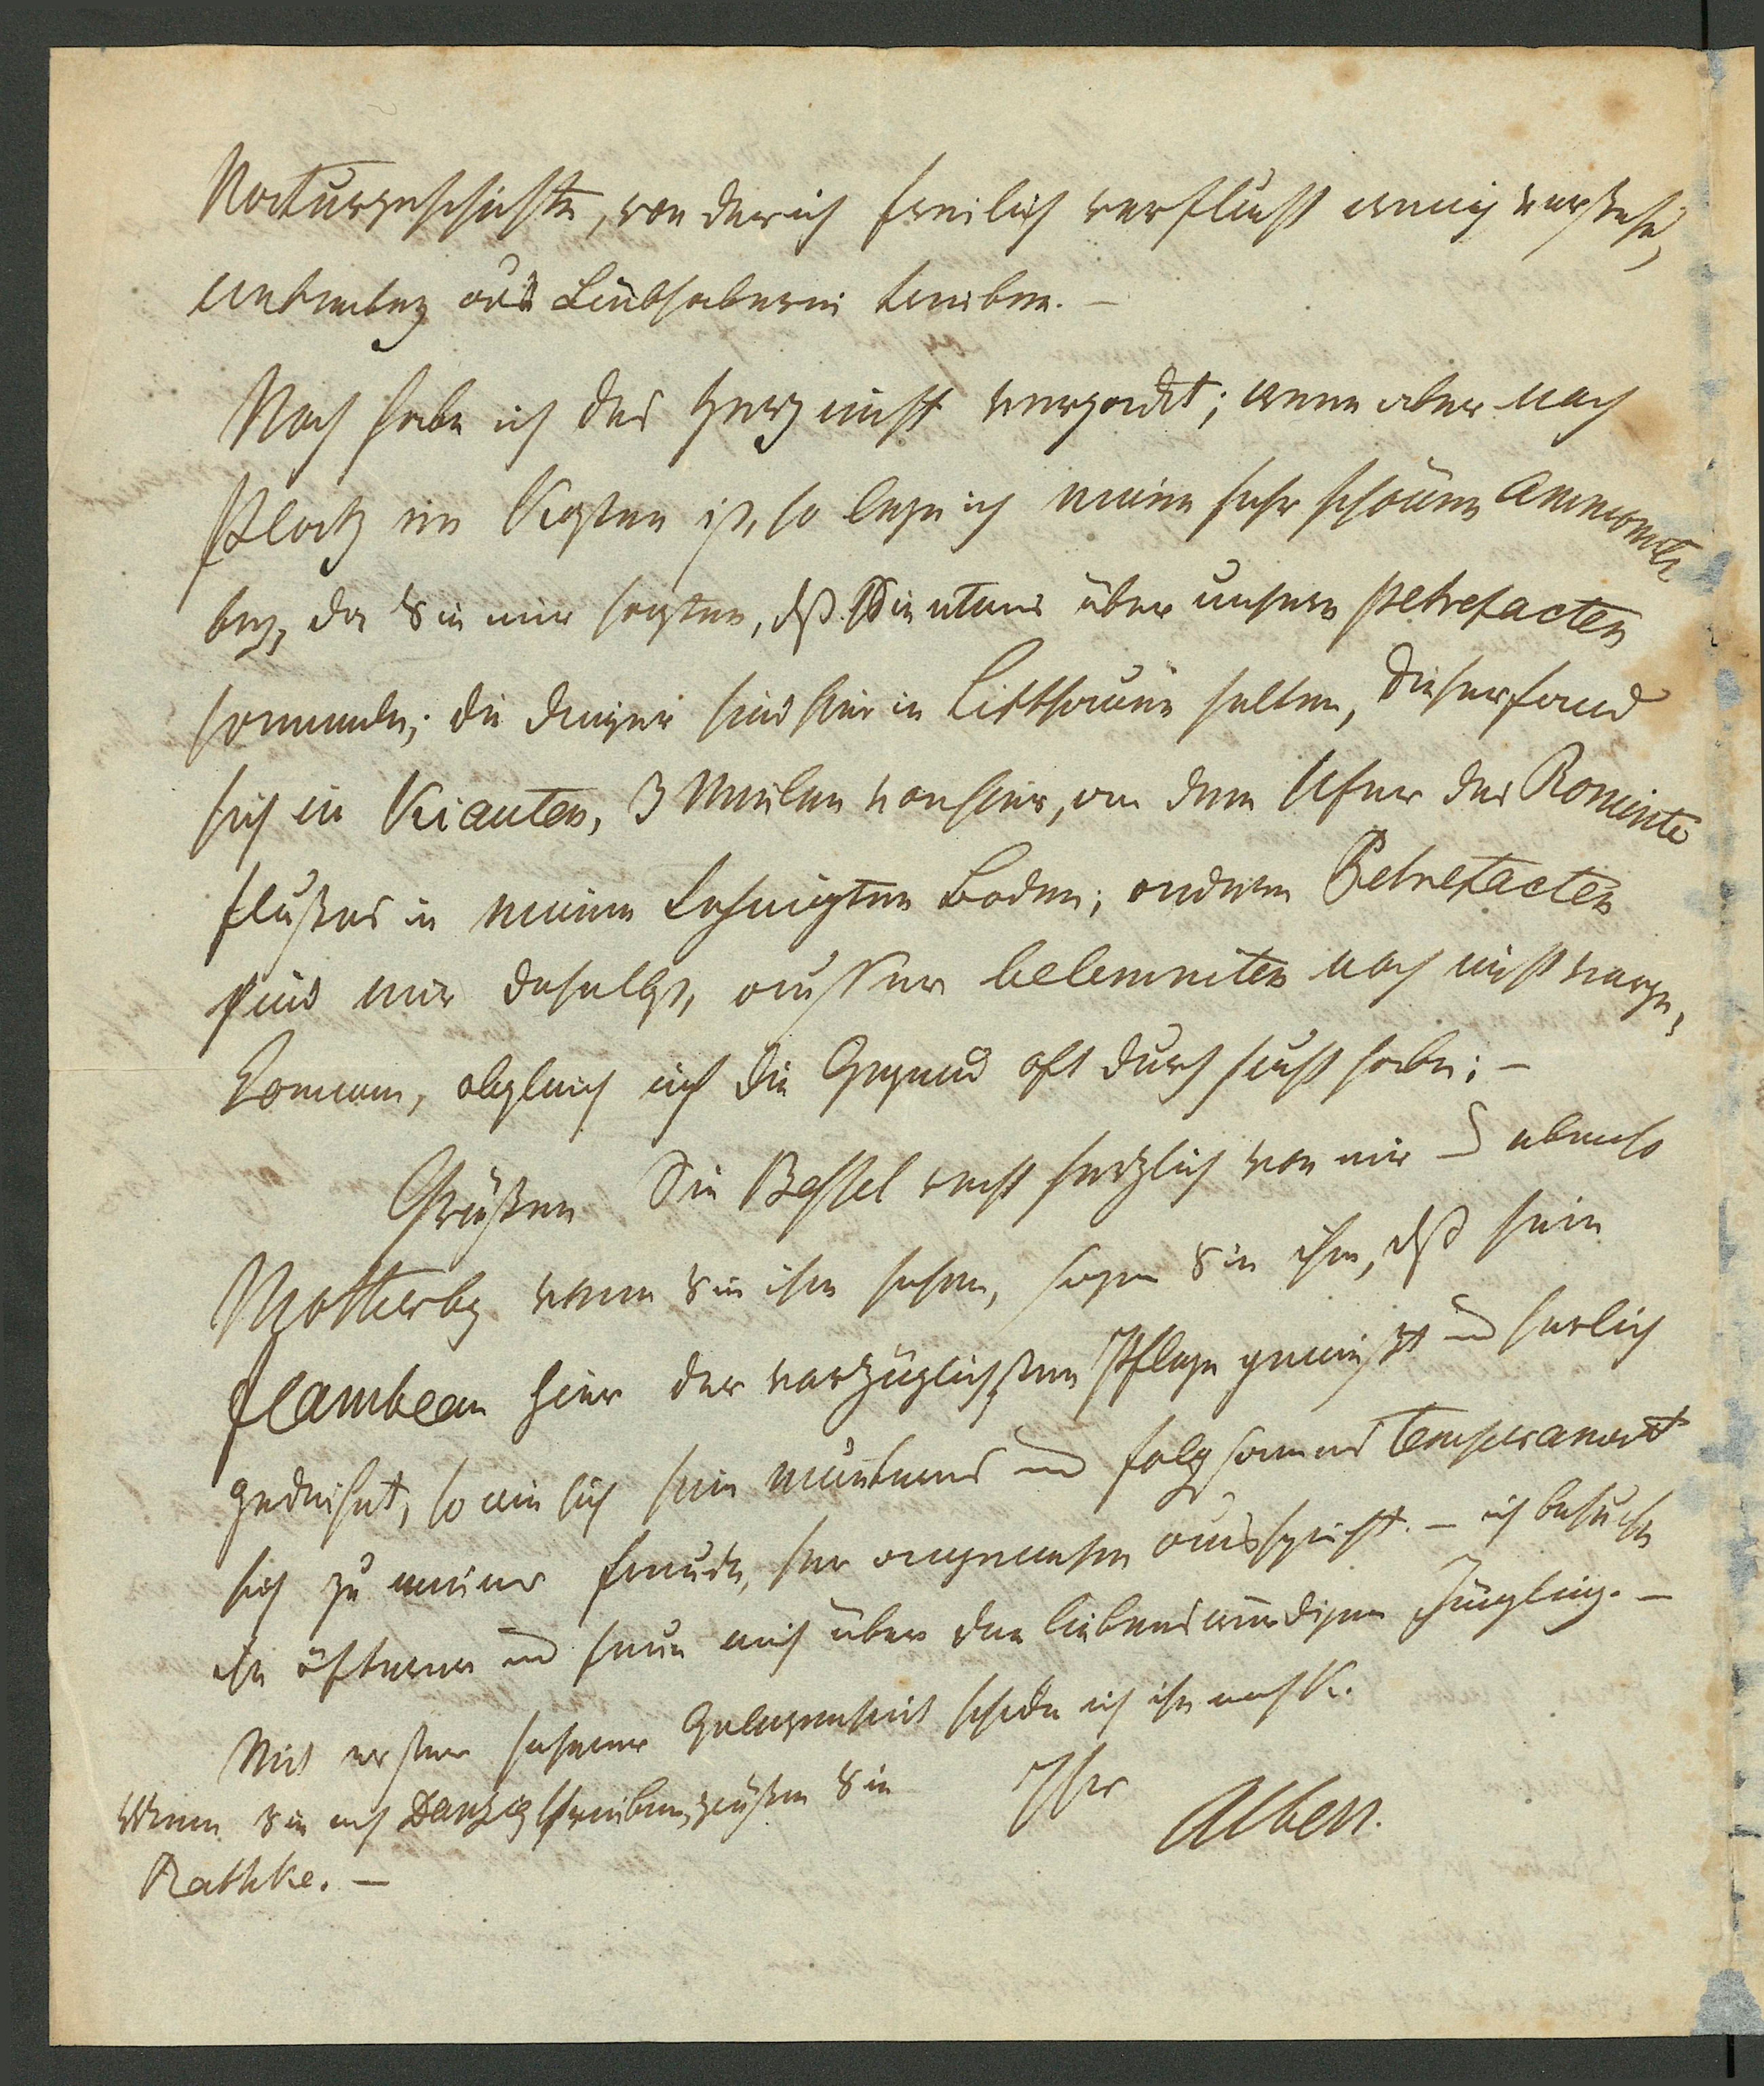 Naturgeschichte, von der ich freilich verflucht wenig verstehe,
unterley aus Liebhaberei treiben. –
Noch habe ich das Herz nicht verpackt; wenn aber noch
Platz im Kasten ist, so lege ich meine sehr schöne Ammonite
bey, da Sie mir sagten, dß Sie etwas über unsere Petrefacten
sammeln; die Dinger sind hier in Litthauen selten, dieser fand
sich in Kiauten, 3 Meilen von hier, an dem Ufer des Rominte
flußes in einem lehmigten Boden; andere Petrefacten
sind mir daselbst, außer belemniten noch nicht vorge-
kommen, obgleich ich die Gegend oft durchsucht habe; –
Grüßen Sie Bessel recht herzlich von mir u ebenso
Motherby wenn Sie ihn sehen, sagen Sie ihm, dß sein
flambeau hier der vorzüglichsten Pflege genießt und herlich
gedeihet, so wie sich sein munteres und folgsames Temperament
sich zu meiner Freude, sehr angenehm ausspricht. – ich besuche
ihn öfterer und freue mich über den liebenswürdigen Jüngling. –
Mit erster sicherer Gelegenheit schicke ich ihn nach K.
Ihr
Albers.
Wenn Sie nach Danzig schreiben, grüßen Sie
Rathke. –